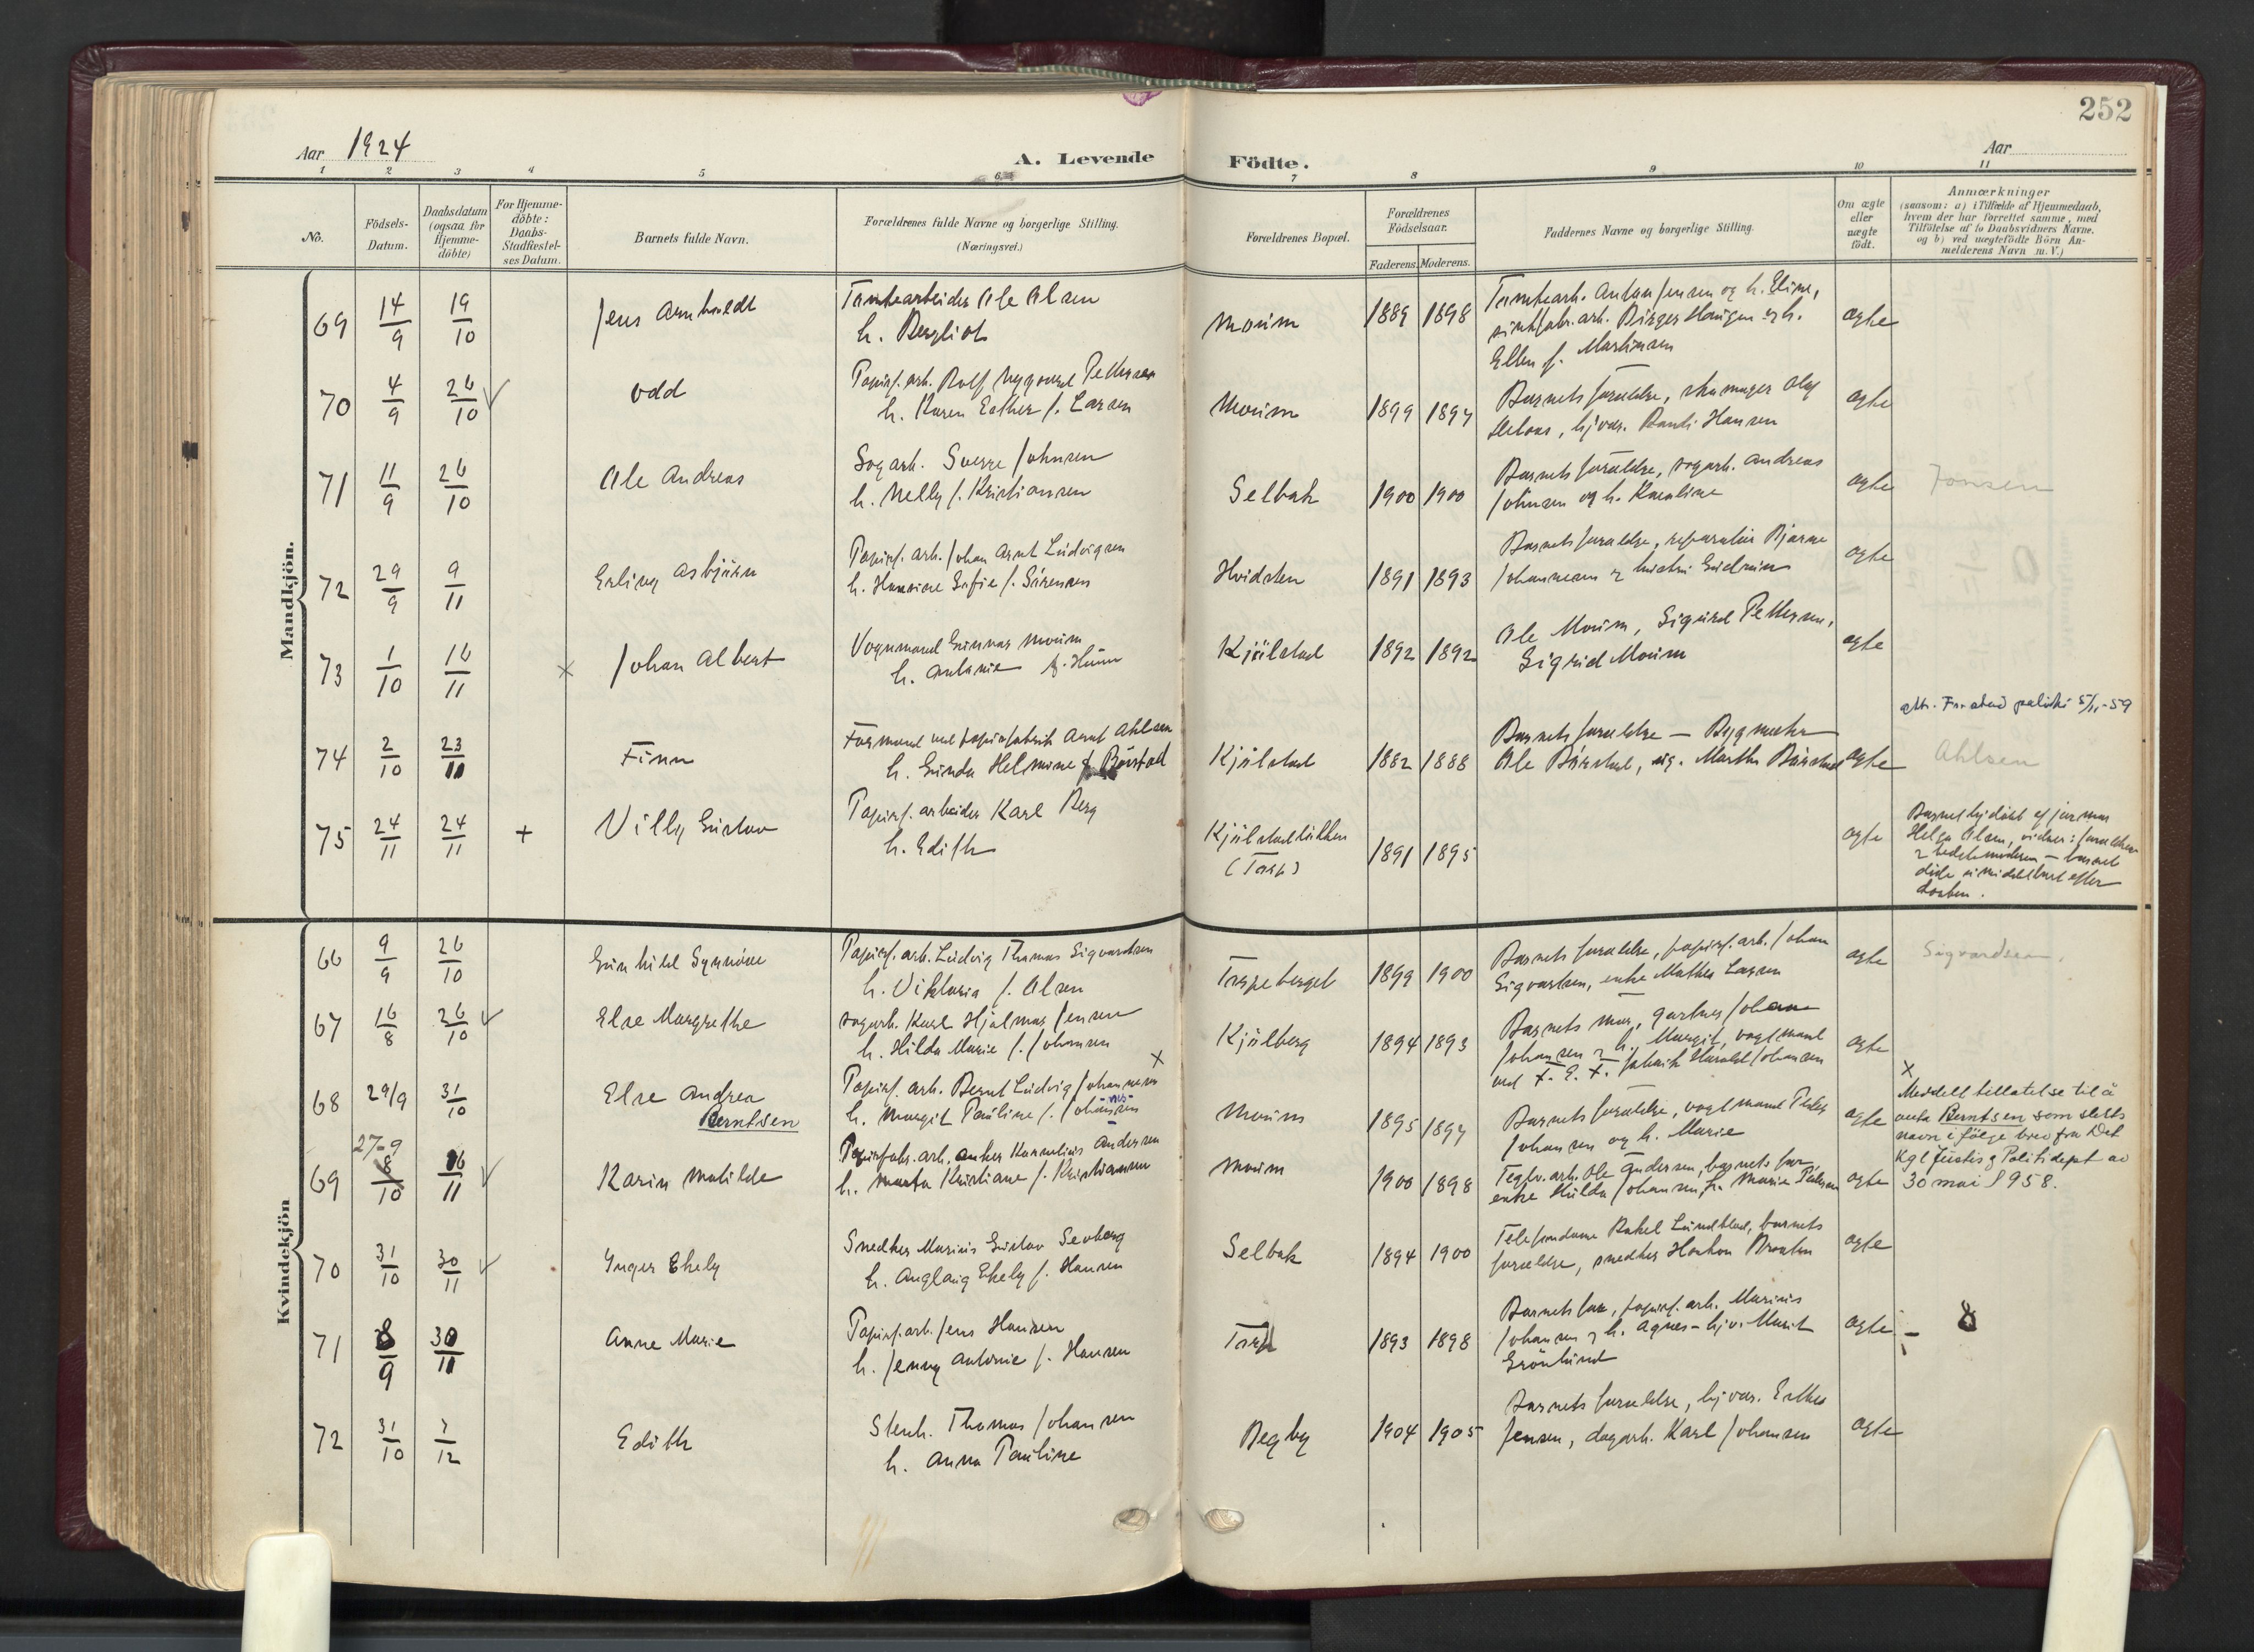 252
Aar 1924
A. Levende Födte.
Aar
1 2 3 4 5 6 7 8 9 10 11
No.
Födsels-
Datum.
Daabsdatum
(ogsaa for
Hjemme-
döbte)
For Hjemme-
döbte:
Daabs-
Stadfestel-
ses Datum.
Barnets fulde Navn.
Forældrenes fulde Navne og borgerlige Stilling.
(Næringsvei.)
Forældrenes Bopæl.
Forældrenes
Födselsaar.
Faderens. Moderens.
Faddernes Navne og borgerlige Stilling.
Om ægte
eller
uægte
födt.
Anmærkninger
(saasom: a) i Tilfælde af Hjemmedaab,
hvem der har forrettet samme, med
Tilföielse af to Daabsvidners Navne.
og b) ved uægtefödte Börn An-
melderens Navn m. V.)
Mandkjön.
69 14/9 19/10 Jens Arnholdt
Tomtearbeider Ole Olsen
h. Bergliot
Moum 1889 1898
Tomtearb. Anton Jensen og h. Eline,
Birger Haugen og h.
Ellen f. Martinsen
ægte
70 4/9 26/10 Odd
Papirf. arb. Rolf Nygaard Pettersen
h. Karen Esther f. Larsen
Moum 1899 1897
Barnets forældre, skomager Olaf
hjvær. Hansen
ægte
71 11/9 26/10 Ole Andreas
Sagarb. Sverre Johnsen
h. Nelly f. Kristiansen
Selbak 1900 1900
Barnets forældre, sagarb. Andreas
Johnsen og h. Karoline
ægte
Jonsen
72 29/9 9/11 Erling Asbjörn
Papirf. arb. Johan Arnt Ludvigsen
h. Hansine Sofie f. Sörensen
Hvidsten 1891 1893
Barnets forældre, reparatör Bjarne
Johannesen & hustru Gudrun
ægte
73 1/10 16/11 × Johan Albert
Vognmand Gunnar Moum
h. Antonie f. Huun
Kjölstad 1892 1892
Ole Moum, Sigurd Pettersen,
Sigrid Moum
ægte
74 2/10 23/11 Finn
Formand ved papirfabrik Arnt Ahlsen
h. Gunda Helmine f. Börstad
Kjölstad 1882 1888
Barnets forældre — Bygmester
Ole Börstad, og. Martha Börstad
ægte
att. Fr.stad politi 5/11-59
Ahlsen
75 24/11 24/11 + Villy Gustav
Papirf. arbeider Karl Berg
h. Edith
Kjölstadlökken
(Torp)
1891 1895
ægte
Barnet hj.döbt af jormor
Helga Olsen, vidner: forældrene
& bedstemoderen — barnet
döde umiddelbart efter
daaben.
Kvindekjön
66 9/9 26/10 Gunhild Synnöve
Papirf. arb. Ludvig Thomas Sigvardsen
h. Viktoria f. Olsen
Torpeberget 1899 1900
Barnets forældre, papirf. arb. Johan
Sigvartsen, enke Mathea Larsen
ægte
Sigvardsen.
67 16/8 26/10 Else Margrethe
sagarb. Karl Hjalmar Jensen
h. Hilda Marie f. Johansen
Kjölberg 1894 1893
Barnets mor, gartner Johan
Johansen & h. Margit, vagtmand
ved F. E. F. fabrik Harald Johansen
ægte
68 29/9 31/10 Else Andrea
Berntsen
Papirf. arb. Bernt Ludvig Johannesen ×
h. Margit Pauline f. Johansen
Moum 1895 1897
Barnets forældre, vagtmand Peder
Johansen og h. Marie
ægte
×
Meddelt tillatelse til å
anta Berntsen som slekts
navn i følge brev fra Det
Kgl Justis & Politidept av
30 mai 1958.
27-9
69 8/10 16/11 Karin Matilde
Papirfabr. arb. Anker Kornelius Andersen
h. Marta Kristiane f. Kristiansen
Moum 1900 1898
Teglv. arb. Ole Andersen, barnets far
enke Hulda Johansen, fr. Marie Pedersen
ægte
70 31/10 30/11 Inger Ehely
Snedker Marius Gustav Seoberg
h. Anglaug Ehely f. Hansen
Selbak 1894 1900
Telefondame Rakel Lundblad, barnets
forældre, snedker Haakon Braaten
ægte
71 8/9 30/11 Anne Marie
Papirf. arb. Jens Hansen
h. Jenny Antonie f. Hansen
Torp 1893 1898
Barnets far, papirf. arb. Marius
Johansen & h. Agnes – hjv. Marit
Grönlund
ægte
– 8
72 31/10 7/12 Edith
Stenh. Thomas Johansen
h. Anna Pauline
Begby 1904 1905
Barnets forældre, hjvær. Esther
Jensen, dagarb. Karl Johansen
ægte